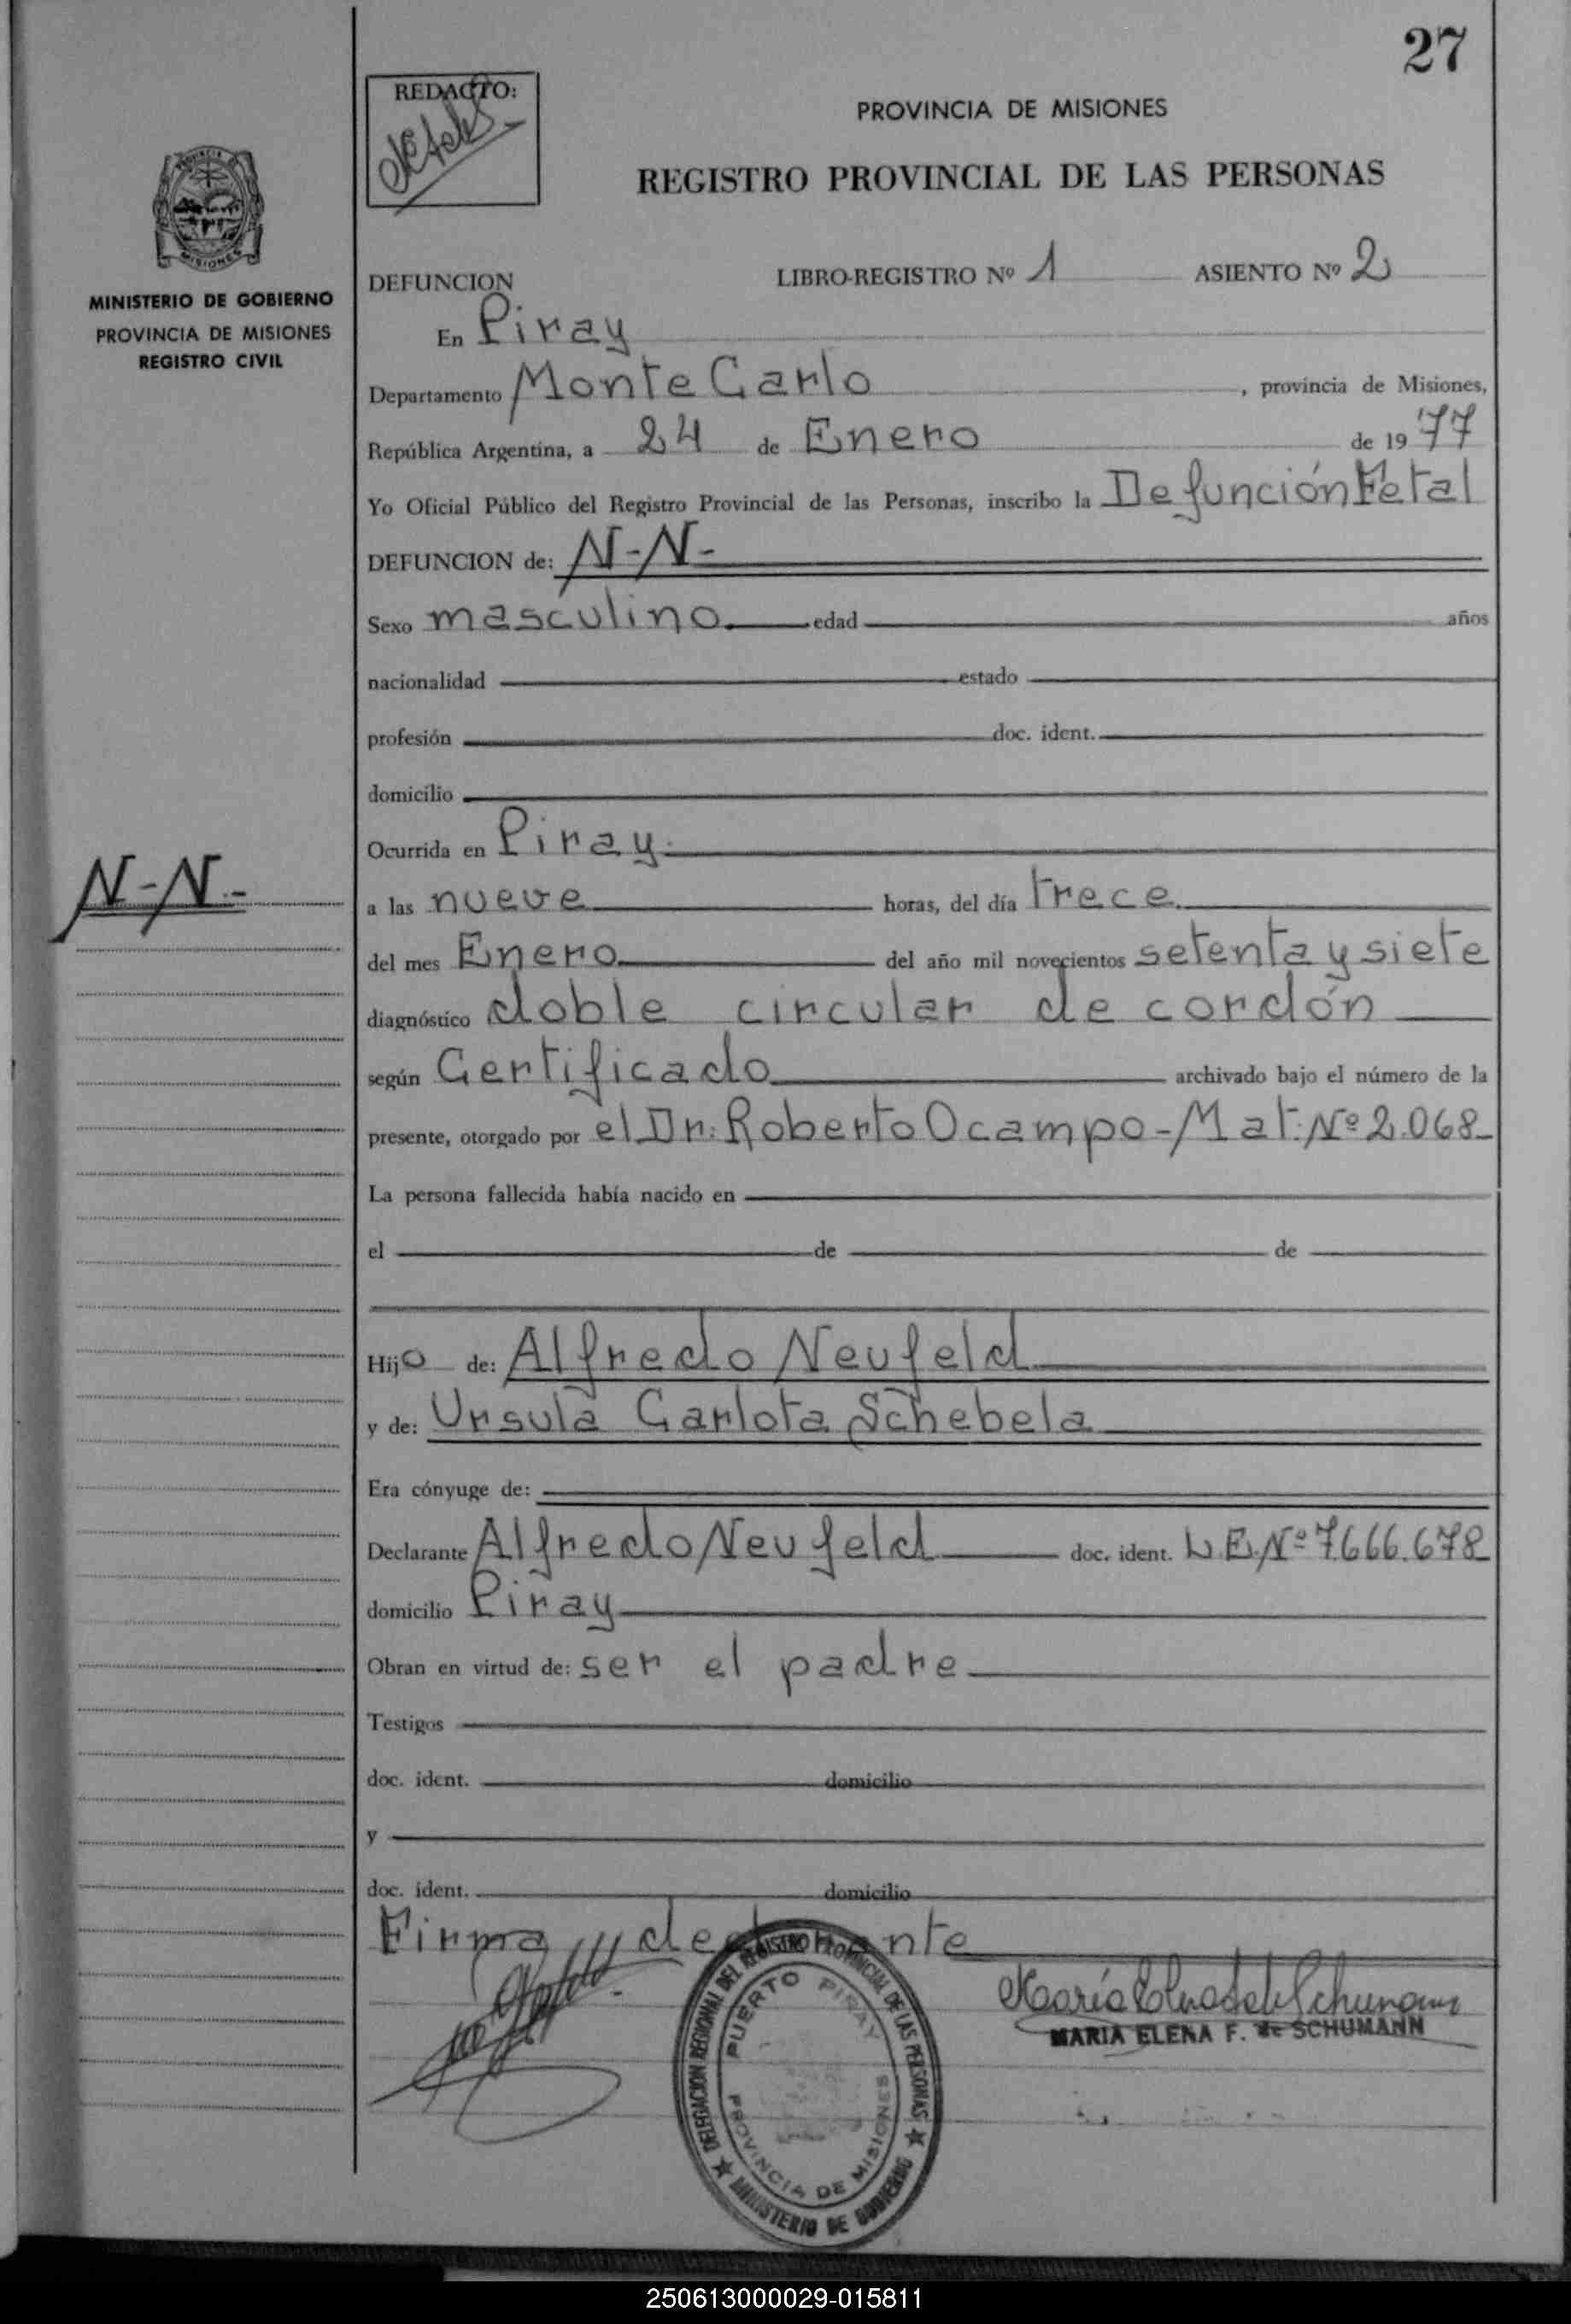 27
REDACTO:
PROVINCIA DE MISIONES
REGISTRO PROVINCIAL DE LAS PERSONAS
MISIONES
MINISTERIO DE GOBIERNO
PROVINCIA DE MISIONES
REGISTRO CIVIL
DEFUNCION LIBRO-REGISTRO Nº 1 ASIENTO Nº 2
En Piray
Departamento Monte Carlo, provincia de Misiones,
República Argentina, a 24 de Enero de 1977
Yo Oficial Público del Registro Provincial de las Personas, inscribo la Defunción Fetal
DEFUNCION de: N-N-
Sexo masculino edad años
nacionalidad estado
profesión doc. ident.
domicilio
Ocurrida en Piray
N-N-
a las nueve horas, del día trece
del mes Enero del año mil novecientos setenta y siete
diagnóstico doble circular de cordón
según Certificado archivado bajo el número de la
presente, otorgado por el Dr: Roberto Ocampo - Mat: Nº 2.068
La persona fallecida había nacido en
el de de
Hijo de: Alfredo Neufeld
y de: Ursula Carlota Schebela
Era cónyuge de:
Declarante Alfredo Neufeld doc. ident. L.E. Nº 7.666.678
domicilio Piray
Obran en virtud de: ser el padre
Testigos
doc. ident. domicilio
y
doc. ident. domicilio
Firma declarante
DELEGACION REGIONAL DEL REGISTRO PROVINCIAL DE LAS PERSONAS
PUERTO PIRAY
PROVINCIA DE MISIONES
MINISTERIO DE GOBIERNO
MARIA ELENA F. de SCHUMANN
250613000029-015811